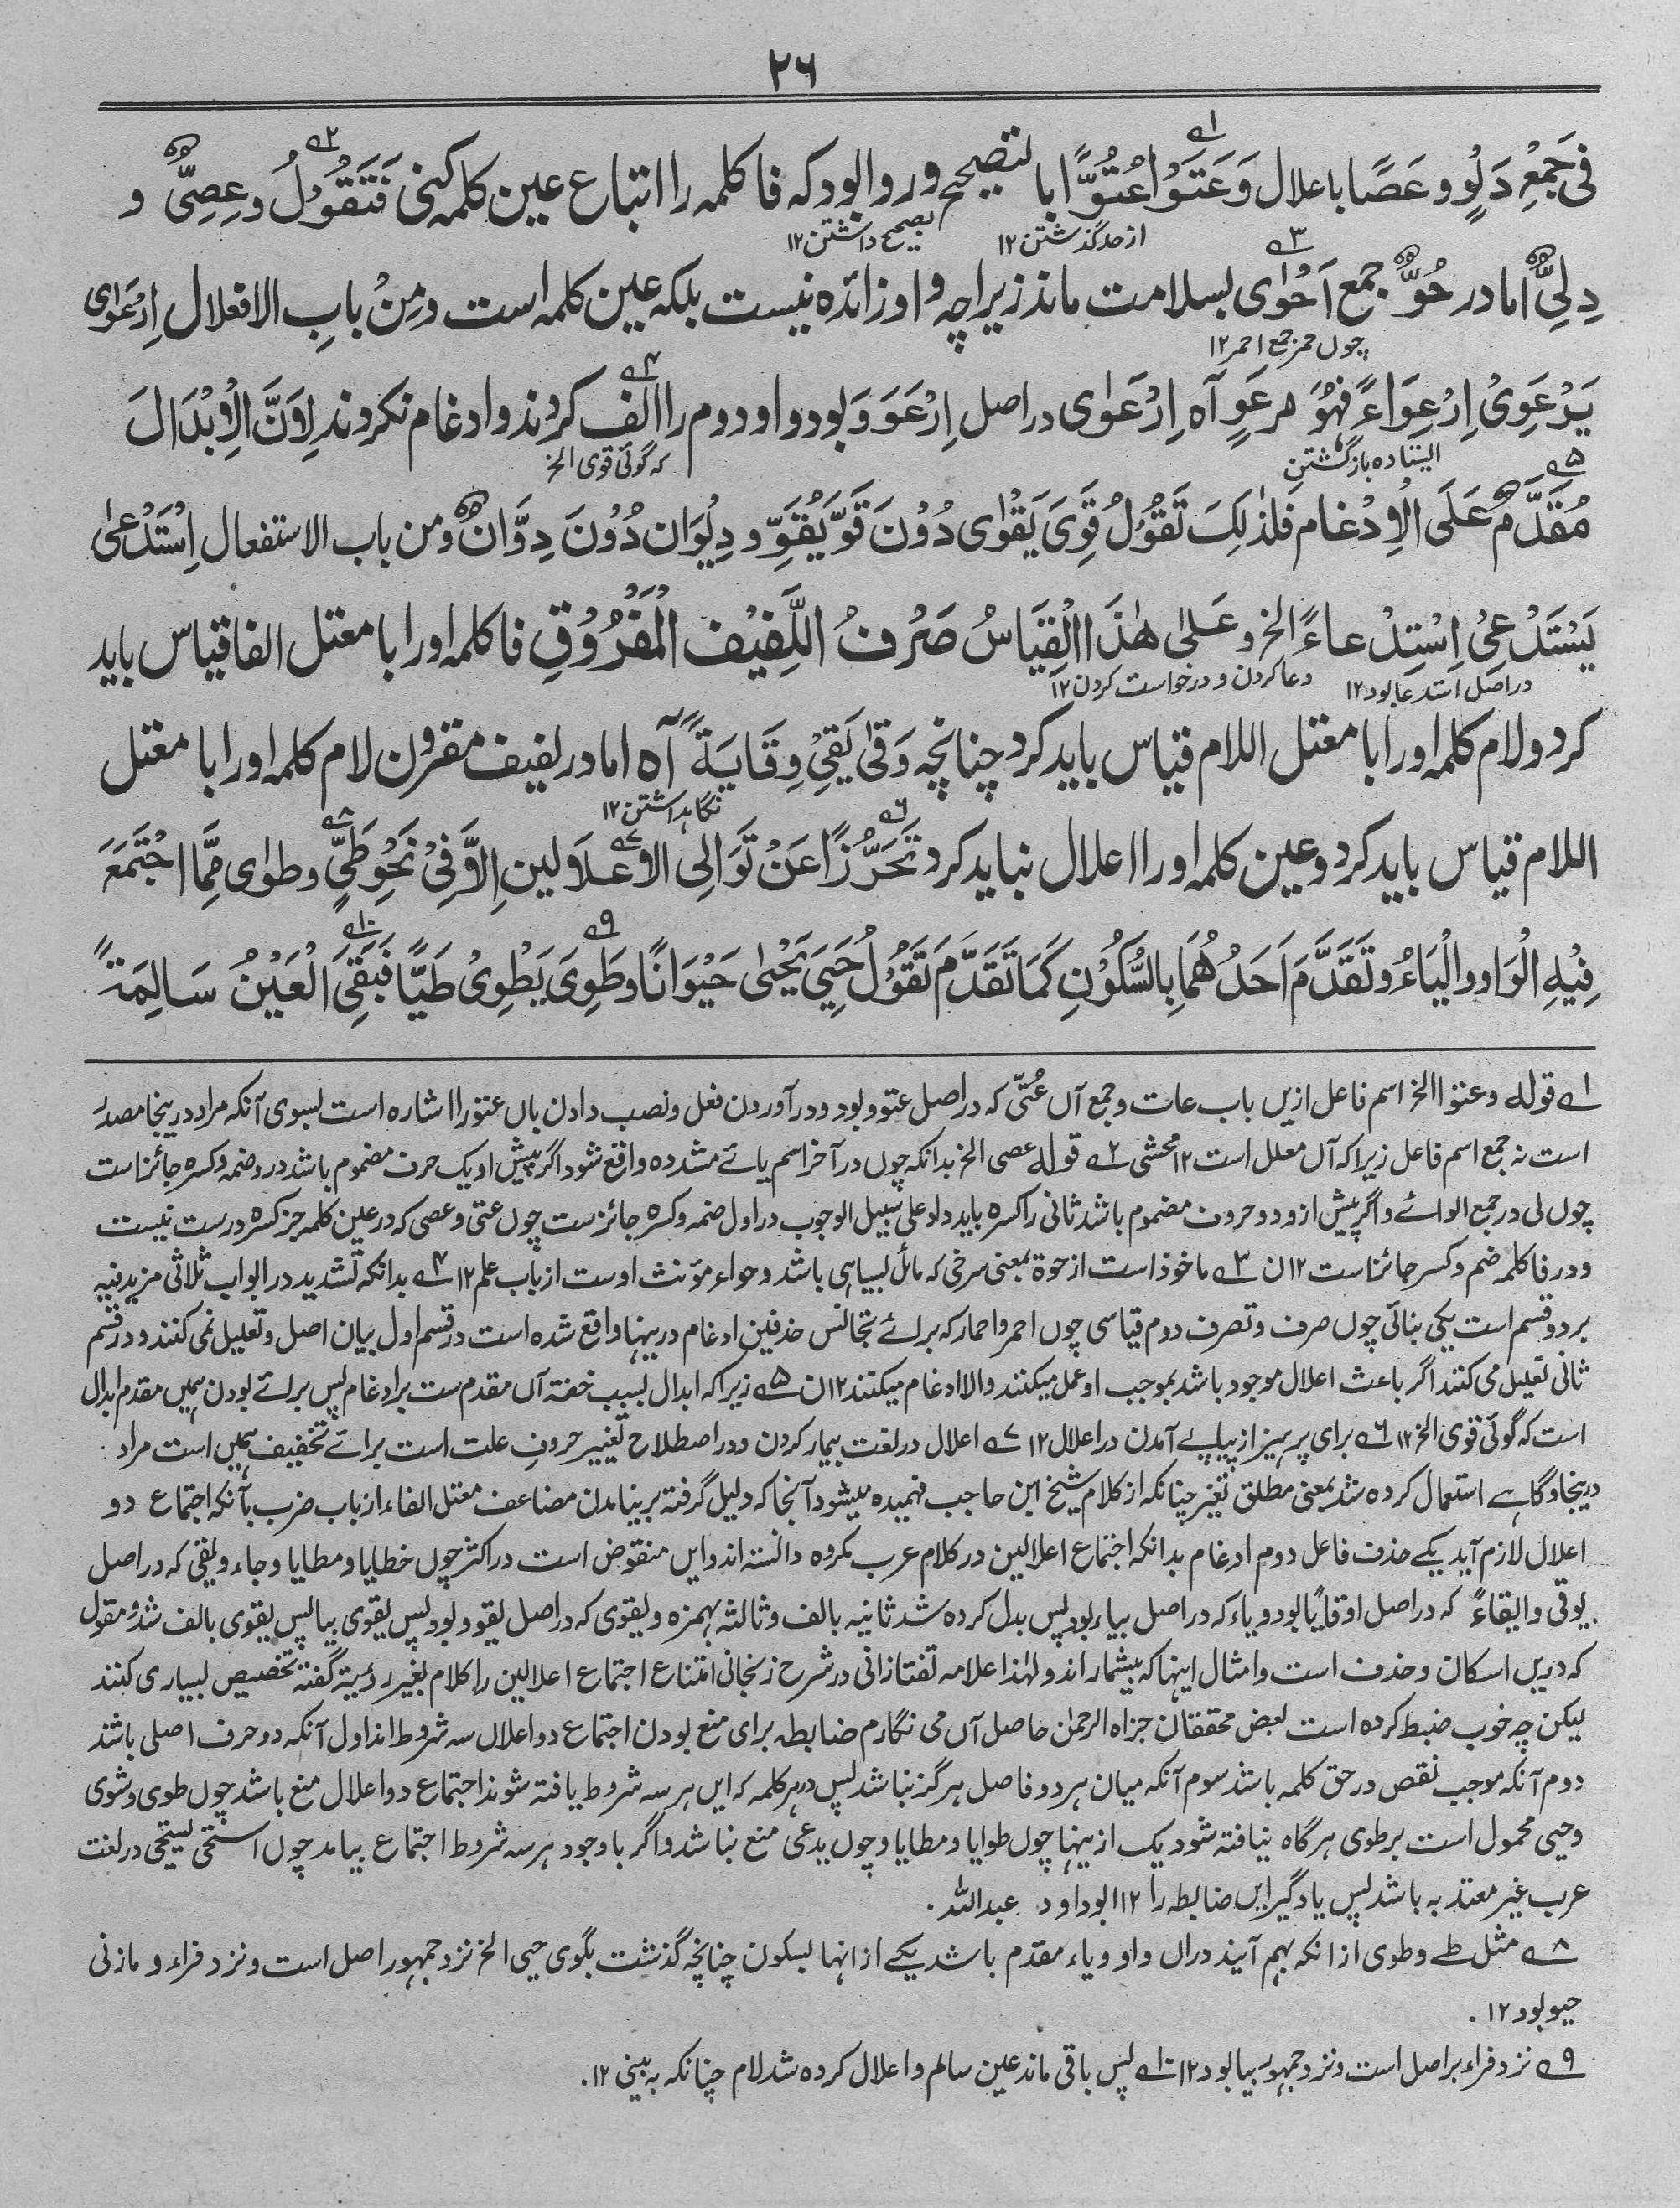 ۲۶
فِیْ جَمْعِ دَلْوٍ و عَصًا باعلال وَعَتَوْا عُتُوًّا با تصحیح و روا بود که فا کلمه را اتباع عین کلمه کنی فَتَقُوْلُ و عِصِیٌّ و
از حد گذشتن ۱۲ بصحیح داشتن ۱۲
دِلِیٌّ اما در حُوٌّ جمع اَحْوٰی بسلامت ماند زیراچه واو زائده نیست بلکه عین کلمه است و مِنْ بابِ الافعلال اِرْعَوٰی
چوں حمر جمع احمر ۱۲
یَرْعَوِیْ اِرْعِوَاءً فَهُوَ مرعَوٍ آه اِرْعَوٰی در اصل اِرْعَوَوَ بود واو دوم را الف کردند و ادغام نکردند لِاَنَّ الْاِبْدَالَ
ایستاده بازگشتن که گوئی قوی الخ
مُقَدَّمٌ عَلَی الْاِدْغام فَلذٰلِکَ تَقُوْلُ قَوِیَ یَقْوٰی دُوْنَ قَوَّ یَقَوُّ و دِیْوَان دُوْنَ دِوَّانٌ و من باب الاستفعال اِسْتَدْعیٰ
یَسْتَدْعِیْ اِسْتِدْعاءً الخ و عَلیٰ هٰذَا الْقِیَاسُ صَرْفُ اللَّفِیْف الْمَفْرُوْقِ فا کلمه اورا با معتل الفا قیاس باید
در اصل استدعا بود ۱۲ دعا کردن و درخواست کردن ۱۲
کرد و لام کلمه اورا با معتل اللام قیاس باید کرد چنانچه وَقیٰ یَقِیْ وِقَایَةً آه اما در لفیف مقرون لام کلمه اورا با معتل
نگاهداشتن ۱۲
اللام قیاس باید کرد و عین کلمه اورا اعلال نباید کرد تَحَرُّزًا عَنْ تَوَالِی الاِعْلَالین اِلَّا فِیْ نَحْوِ طَیٍّ و طوٰی مِمَّا اجْتَمَعَ
فِیْهِ الْوَاو والْیَاءُ و تَقَدَّمَ اَحَدُهُمَا بِالسُّکُوْنِ کَمَا تَقَدَّمَ تَقُوْلُ حَیِیَ یَحْییٰ حَیْوَانًا و طَوِیَ یَطْوِیْ طَیًّا فَبَقِیَ الْعَیْنُ سَالِمَةً
۱ے قوله وعتوا الخ اسم فاعل ازیں باب عات و جمع آں عُتیّ که در اصل عتوو بود و در آوردن فعل و نصب دادن باں عتورا اشاره است بسوی آنکه مراد دریجا مصدر
است نه جمع اسم فاعل زیرا که آں معلل است ۱۲ محشی ۲ے قوله عصی الخ بدانکه چوں در آخر اسم یائے مشدده واقع شود اگر پیش او یک حرف مضموم باشد در و ضمه و کسره جائز است
چوں لی در جمع الوائے و اگر پیش ازو دو حروف مضموم باشد ثانی را کسره باید داد علی سبیل الوجوب در اول ضمه و کسره جائز ست چوں عتی و عصی که در عین کلمه جز کسره درست نیست
و در فا کلمه ضم و کسر جائز است ۱۲ ن ۳ے ماخوذ است از حوة بمعنی سرخی که مائل بسیاهی باشد و حواء مؤنث اوست از باب علم ۱۲ ۴ے بدانکه تشدید در ابواب ثلاثی مزید فیه
بر دو قسم است یکی بنائی چوں صرف و تصرف دوم قیاسی چوں احمر و احمار که برائے تجانس حرفین ادغام دریںها واقع شده است در قسم اول بیان اصل و تعلیل نمی کنند و در قسم
ثانی تعلیل می کنند اگر باعث اعلال موجود باشد بموجب او عمل میکنند والا ادغام میکنند ۱۲ ن ۵ے زیرا که ابدال بسبب خفة آں مقدم ست برادغام پس برائے بودن همیں مقدم ابدال
است که گوئی قوی الخ ۱۲ ۶ے برای پرهیز از پیاپے آمدن در اعلال ۱۲ ۷ے اعلال در لغت بیمار کردن و در اصطلاح تغییر حروف علت است برائے تخفیف همیں است مراد
دریجا و گاهے استعمال کرده شد بمعنی مطلق تغیر چنانکه از کلام شیخ ابن حاجب فهمیده میشود آنجا که دلیل گرفته بر نیامدن مضاعف معتل الفاء از باب ضرب بآنکه اجتماع دو
اعلال لازم آید یکے حذف فاعل دوم ادغام بدانکه اجتماع اعلالین در کلام عرب مکروه دانسته اند و ایں منقوض است در اکثر چوں خطایا و مطایا و جاء و یقی که در اصل
یوقی و ایقاءً که در اصل اوقایًا بود و یاء که در اصل بیاء بود پس بدل کرده شد ثانیه بالف و ثالثه بهمزه و یقوی که در اصل یقوو بود پس یقوی بیا پس یقوی بالف شد و مقول
که دریں اسکان و حذف است و امثال اینها که بیشمار اند و لهٰذا علامه تفتازانی در شرح زنجانی امتناع اجتماع اعلالین را کلام بغیر رؤیة گفته تخصیص بسیار ی کنند
لیکن چه خوب ضبط کرده است بعض محققان جزاه الرحمٰن حاصل آں می نگارم ضابطه برای منع بودن اجتماع دو اعلال سه شروط اند اول آنکه دو حرف اصلی باشد
دوم آنکه موجب نقص در حق کلمه باشد سوم آنکه میان هر دو فاصل هرگز نباشد پس در هر کلمه که ایں هر سه شروط یافته شوند اجتماع دو اعلال منع باشد چوں طوی و شوی
و حیی محمول است بر طوی هرگاه نیافته شود یک ازینها چوں طوایا و مطایا و چوں یدعی منع نباشد و اگر باوجود هر سه شروط اجتماع بیامد چوں استحی یستحی در لغت
عرب غیر معتد به باشد پس یادگیر ایں ضابطه را ۱۲ ابوداود عبدالله۔
۸ے مثل طے و طوی ازانکه بهم آیند دراں واو و یاء مقدم باشد یکے ازانها بسکون چنانچه گذشت بگوی حیی الخ نزد جمهور اصل است و نزد فراء و مازنی
حیو بود ۱۲۔
۹ے نزد فراء بر اصل است و نزد جمهور بیا بود ۱۲ ۱۰ے پس باقی ماند عین سالم و اعلال کرده شد لام چنانکه به بینی ۱۲۔